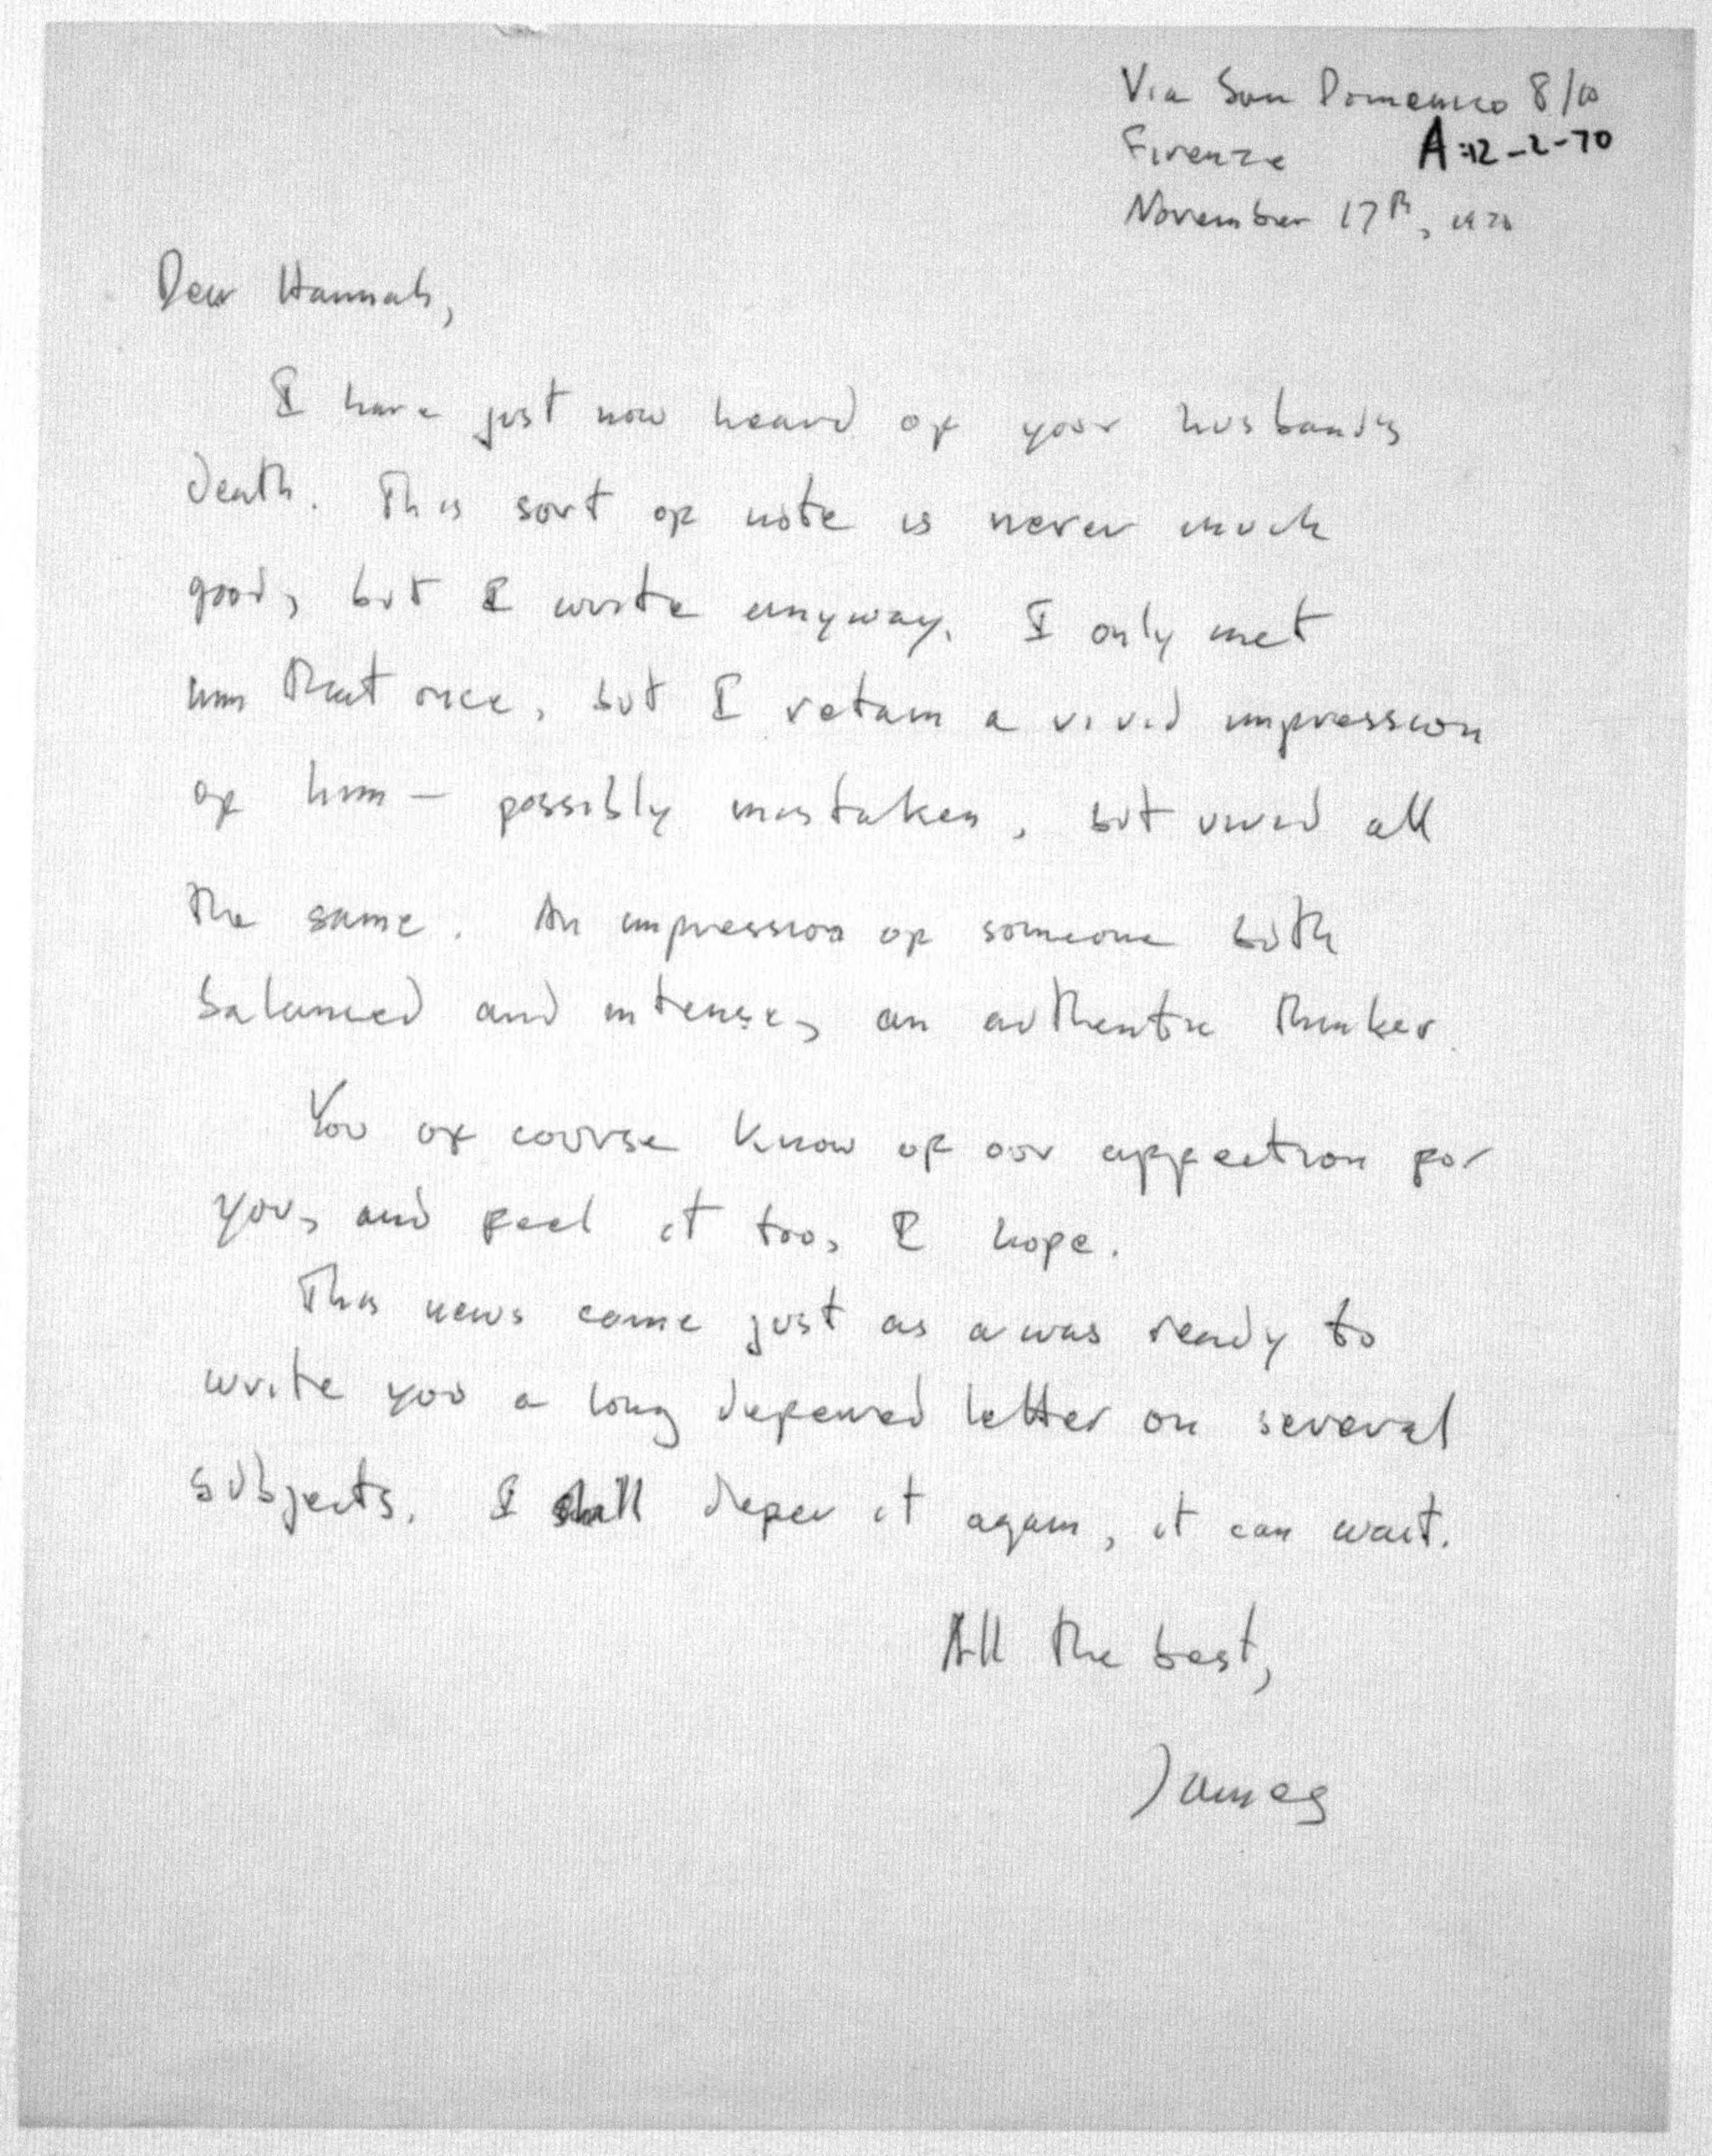 Via San Domenico 8/10
Firenze A:12-2-70
November 17th, 1970
Dear Hannah,
I have just now heard of your husband's
death. This sort of note is never much
good, but I write anyway. I only met
him that once, but I retain a vivid impression
of him — possibly mistaken, but vivid all
the same. An impression of someone both
balanced and intense, an authentic thinker.
You of course know of our affection for
you, and feel it too, I hope.
This news came just as a was ready to
write you a long deferred letter on several
subjects. I shall defer it again, it can wait.
All the best,
James